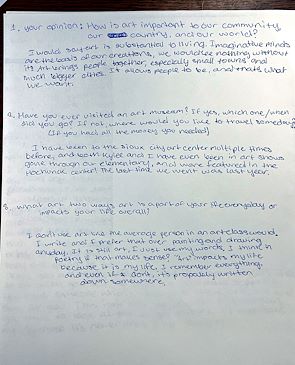 1. your opinion: How is art important to our community,
our country, and our world?
I would say art is substantial to living. Imaginative minds
are the basis of our creations, we would be nothing without
it. Art brings people together, especially small towns and
much bigger cities. It allows people to be, and that's what
we want.
2. Have you ever visited an art museum? If yes, which one/when
did you go? If not, where would you like to travel someday?
(If you had all the money you needed)
I have been to the Sioux city art center multiple times
before, and both Kylee and I have even been in art shows
gone through our elementary, and were featured in the
Hochunck center! The last time we went was last year.
3. What art two ways art is a part of your life everyday or
impacts your life overall?
I don't use art like the average person in an art class would.
I write and I prefer that over painting and drawing
anyday. It is still art, I just use my words, I think in
poetry if that makes sense? "Art" impacts my life
because it is my life, I remember everything.
and even if I don't, its propably written
down somewhere.